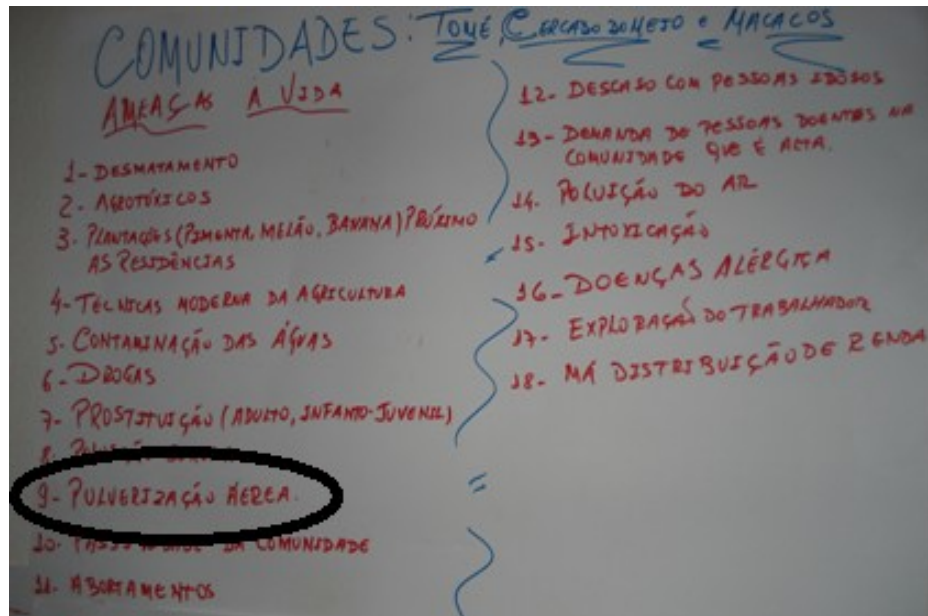 COMUNIDADES: TOMÉ, CERCADO DO MEIO e MACACOS
AMEAÇAS A VIDA
1- DESMATAMENTO
2- AGROTÓXICOS
3- PLANTAÇÕES (PIMENTA, MELÃO, BANANA) PRÓXIMO
AS RESIDÊNCIAS
4- TÉCNICAS MODERNA DA AGRICULTURA
5- CONTAMINAÇÃO DAS ÁGUAS
6- DROGAS
7- PROSTITUIÇÃO (ADULTO, INFANTO-JUVENIL)
8-
9- PULVERIZAÇÃO AÉREA.
10- DA COMUNIDADE
11- ABORTAMENTOS
12- DESCASO COM PESSOAS IDOSOS
13- DEMANDA DE PESSOAS DOENTES NA
COMUNIDADE QUE É ALTA.
14. POLUIÇÃO DO AR
15- INTOXICAÇÃO
16- DOENÇAS ALÉRGICA
17- EXPLORAÇÃO DO TRABALHADOR
18- MÁ DISTRIBUIÇÃO DE RENDA